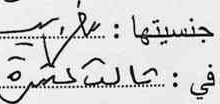 جنسيتها :
في : ثالث عشرة